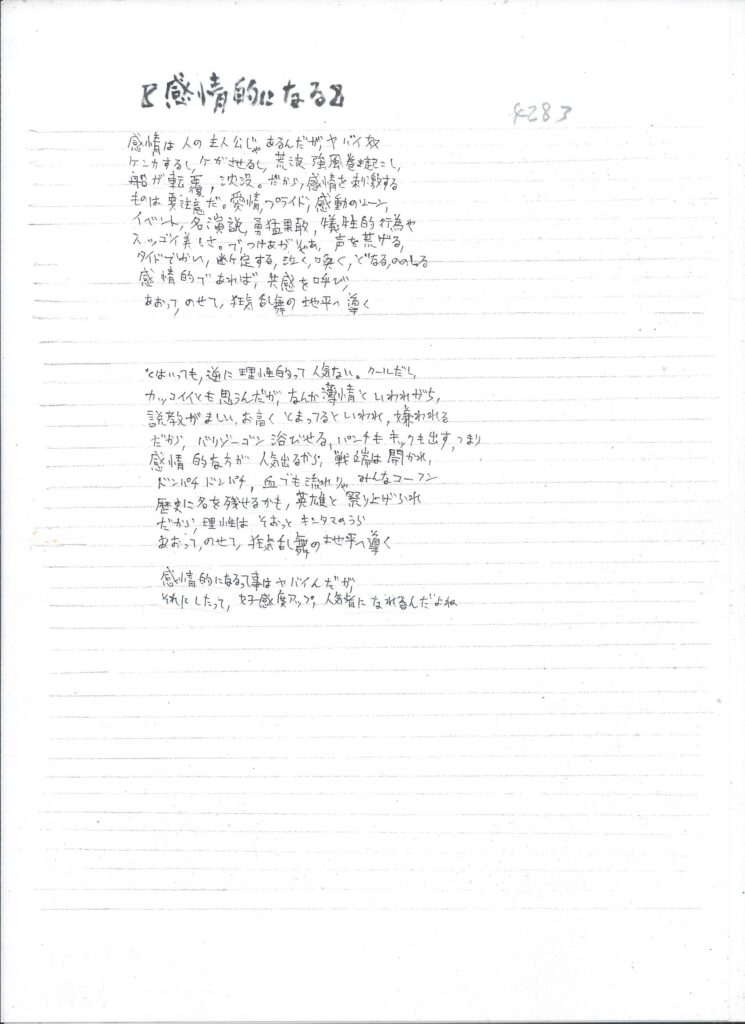 〖感情的になる〗
4283
感情は人の主人公じゃあるんだが、ヤバイ奴
ケンカするし、ケガさせるし、荒波、強風巻き起こし、
船が転覆、沈没。だから、感情を刺激する
ものは要注意だ。愛情、プライド、感動のシーン、
イベント、名演説、勇猛果敢、犠牲的行為や
スッゴイ美しさ。で、つけあがりゃあ、声を荒げる、
タイドでかい、断定する、泣く、喚く、どなる、ののしる
感情的であれば、共感を呼び、
あおって、のせて、狂気乱舞の地平へ導く
とはいっても、逆に理性的って人気ない。クールだし、
カッコイイとも思うんだが、なんか薄情といわれがち、
説教がましい、お高くとまってるといわれ、嫌われる
だから、バリゾーゴン浴びせる、パンチもキックも出す、つまり
感情的な方が人気出るから、戦端は開かれ、
ドンパチドンパチ、血でも流れりゃみんなコーフン
歴史に名を残せるかも、英雄と祭り上げられ
だから、理性はそおっとキンタマのうら
あおって、のせて、狂気乱舞の地平へ導く
感情的になるって事はヤバイんだが、
それにしたって、好感度アップ、人気者になれるんだよね